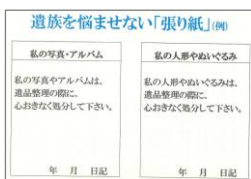 遺族を悩ませない「張り紙」(例)
私の写真・アルバム
私の写真やアルバムは、
遺品整理の際に、
心おきなく処分して下さい。
年 月 日記
私の人形やぬいぐるみ
私の人形やぬいぐるみは、
遺品整理の際に、
心おきなく処分して下さい。
年 月 日記